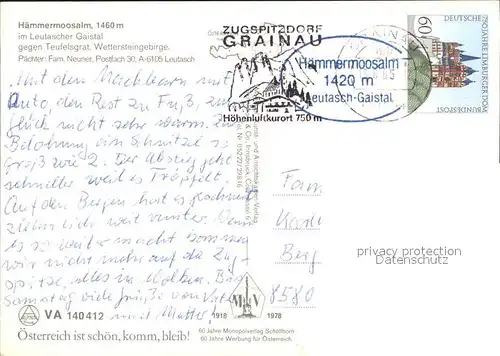 Hämmermoosalm, 1460 m
im Leutascher Gaistal
gegen Teufelsgrat, Wettersteingebirge.
Pächter: Fam. Neuner, Postfach 30, A-6105 Leutasch
ZUGSPITZDORF
GRAINAU
Höhenluftkurort 750 m
Hämmermoosalm
1420 m
Leutasch-Gaistal
60
DEUTSCHE
BUNDESPOST
750 JAHRE LIMBURGER DOM
Mit den Nachbarn im
Auto, den Rest zu Fuß, zum
Glück nicht sehr warm. Zur
Belohnung ein Schnitzel so
Groß wie 2. Der Abstieg geht
schneller weil es Tröpfelt
Auf den Bergen hat es geschneit
ziehmlich weit runter. Wenn
es so weiter macht kommen
wir nicht mehr auf die Zug-
spitze, alles in Wolken. Bis
Samstag viele Grüße von Vater
und Mutter!
Fam
Berg
8580
VA 140 412
MV
1918 1978
Österreich ist schön, komm, bleib!
60 Jahre Monopolverlag Schöllhorn
60 Jahre Werbung für Österreich.
privacy protection
Datenschutz